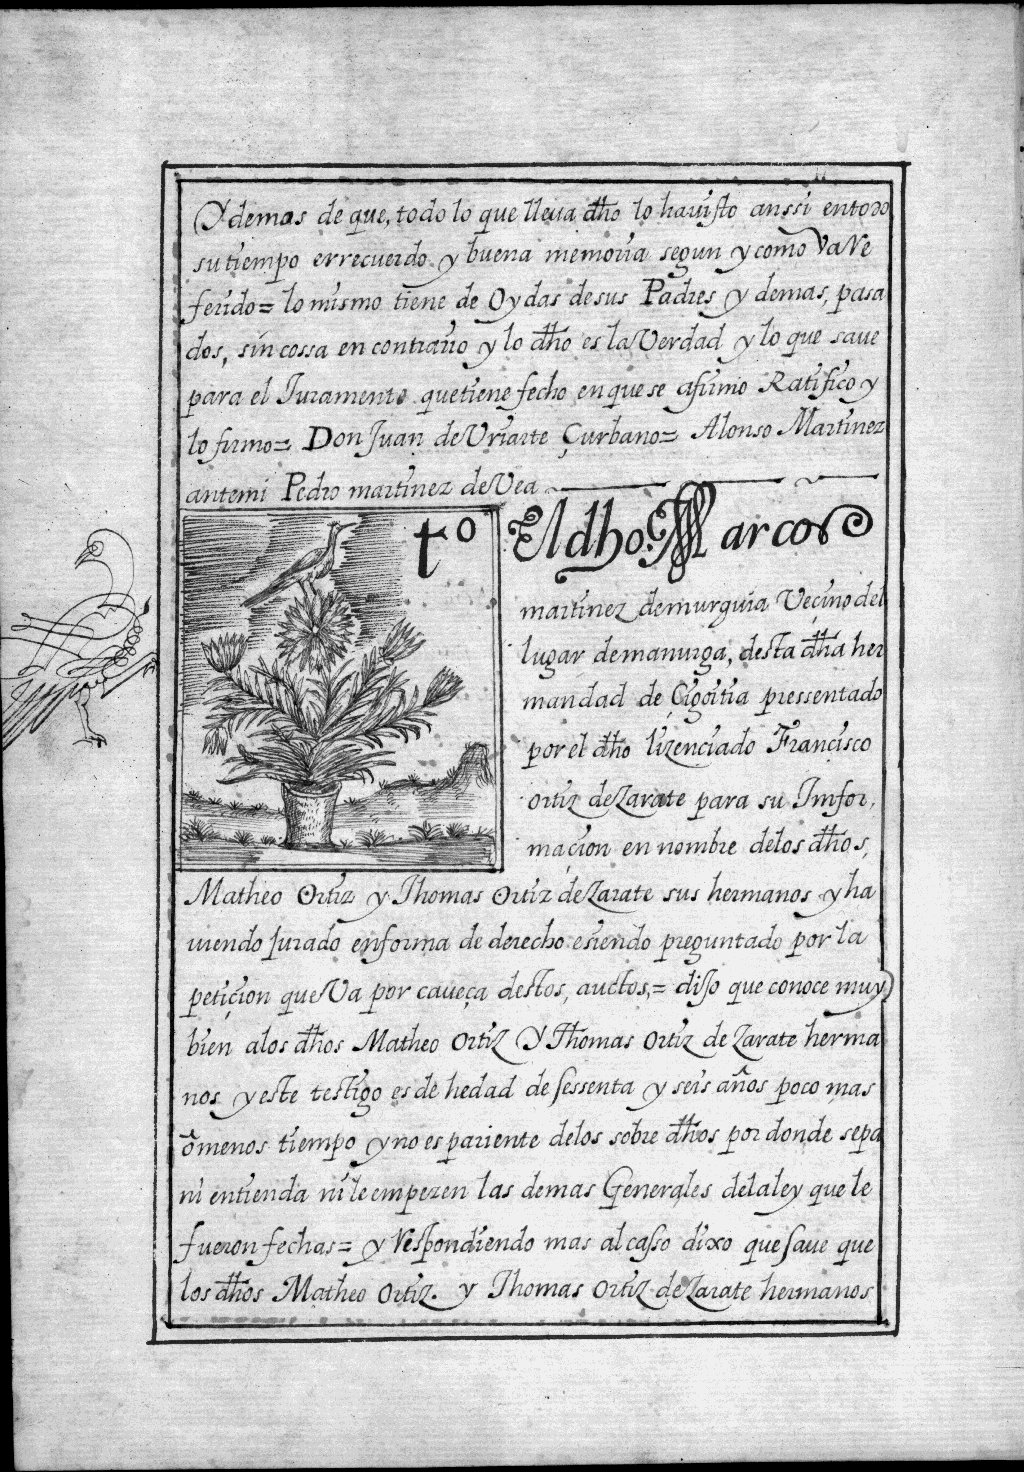 Y demas de que, todo lo que lleua dho lo ha visto anssi en todo
su tiempo er recuerdo y buena memoria segun y como Va Re
ferido= lo mismo tiene de Oydas de sus Padres y demas, pasa
dos, sin cossa en contrario y lo dho es la Verdad y lo que saue
para el Juramento que tiene fecho en que se afirmo Ratifico y
lo firmo= Don Juan de Vriarte Çurbano= Alonso Martinez
antemi Pedro martinez de Vea
tº El dho Marcos
martinez de murguia Veçino del
lugar de manurga, desta dha her
mandad de Çigoitia pressentado
por el dho lizenciado Francisco
ortiz de Zarate para su Imfor,
maçion en nombre de los dhos,
Matheo Ortiz y Thomas Ortiz de Zarate sus hermanos y ha
uiendo Jurado en forma de derecho esiendo preguntado por la
petiçion que Va por caueça destos, auctos,= dijo que conoce muy
bien a los dhos Matheo Ortiz Y Thomas Ortiz de Zarate herma
nos y este testigo es de hedad de sessenta y seis años poco mas
ô menos tiempo y no es pariente de los sobre dhos por donde sepa
ni entienda ni le empezen las demas Generales de la ley que le
fueron fechas= y Respondiendo mas al casso dixo que saue que
los dhos Matheo Ortiz. y Thomas Ortiz de Zarate hermanos